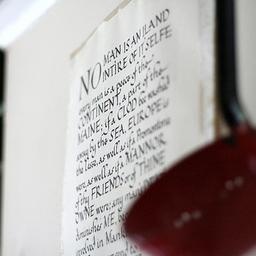 NO MAN IS AN ILAND
INTIRE OF IT SELFE
every man is a peece of the
CONTINENT, a part of the
MAINE; if a CLOD bee washed
away by the SEA, EUROPE is
the lesse, as well as if a Promontorie
were, as well as if a MANNOR
of thy FRIENDS or of THINE
OWNE were; any mans
diminishes ME, be
involved in Man